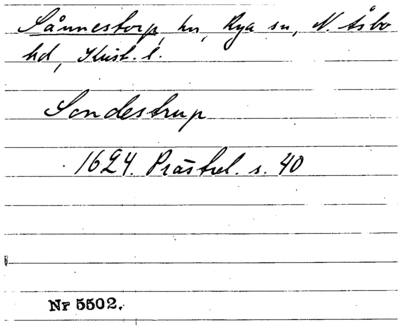 Sånnestorp, hn, Rya sn, N. Åsbo
hd, Krist. l.
Sondestrup
1624. Prästrel. s. 40
Nr 5502.